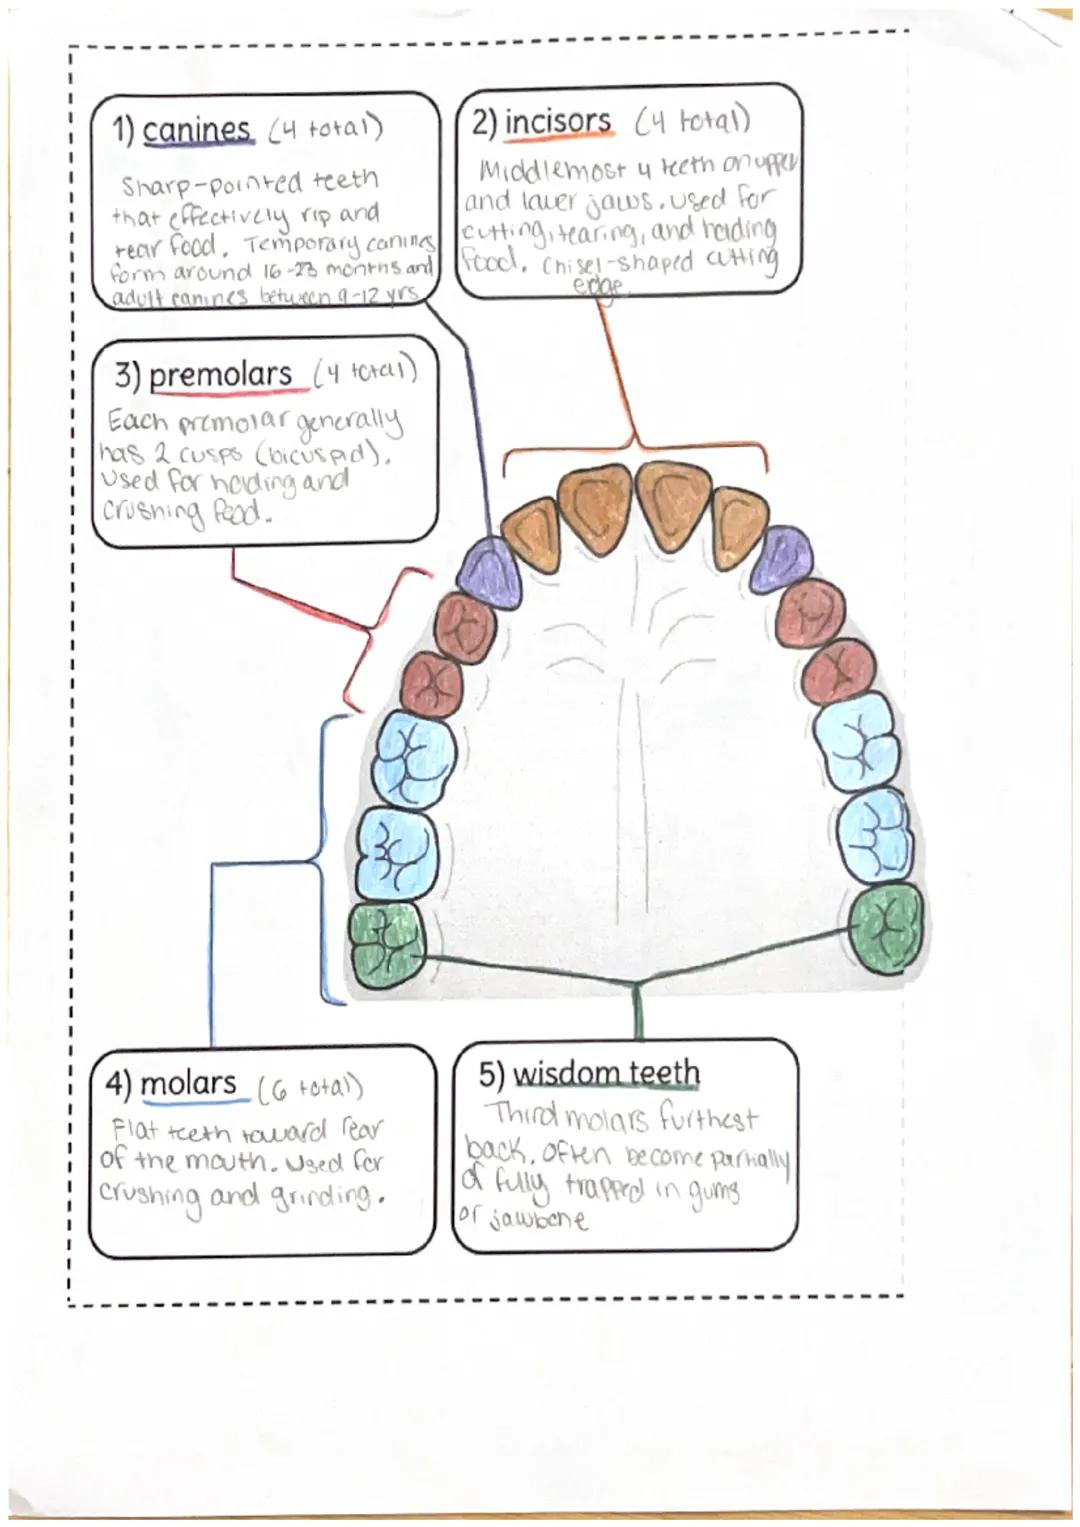 1) canines (4 total)
Sharp-pointed teeth
that effectively rip and
tear food. Temporary canines
form around 16-23 months and
adult canines between 9-12 yrs
2) incisors (4 total)
Middlemost 4 teeth on upper
and lower jaws. used for
cutting, tearing, and holding
food. Chisel-shaped cutting
edge
3) premolars (4 total)
Each premolar generally
has 2 cusps (bicuspid).
Used for holding and
crushing food.
4) molars (6 total)
Flat teeth toward rear
of the mouth. Used for
crushing and grinding.
5) wisdom teeth
Third molars furthest
back. Often become partially
of fully trapped in gums
or jawbone